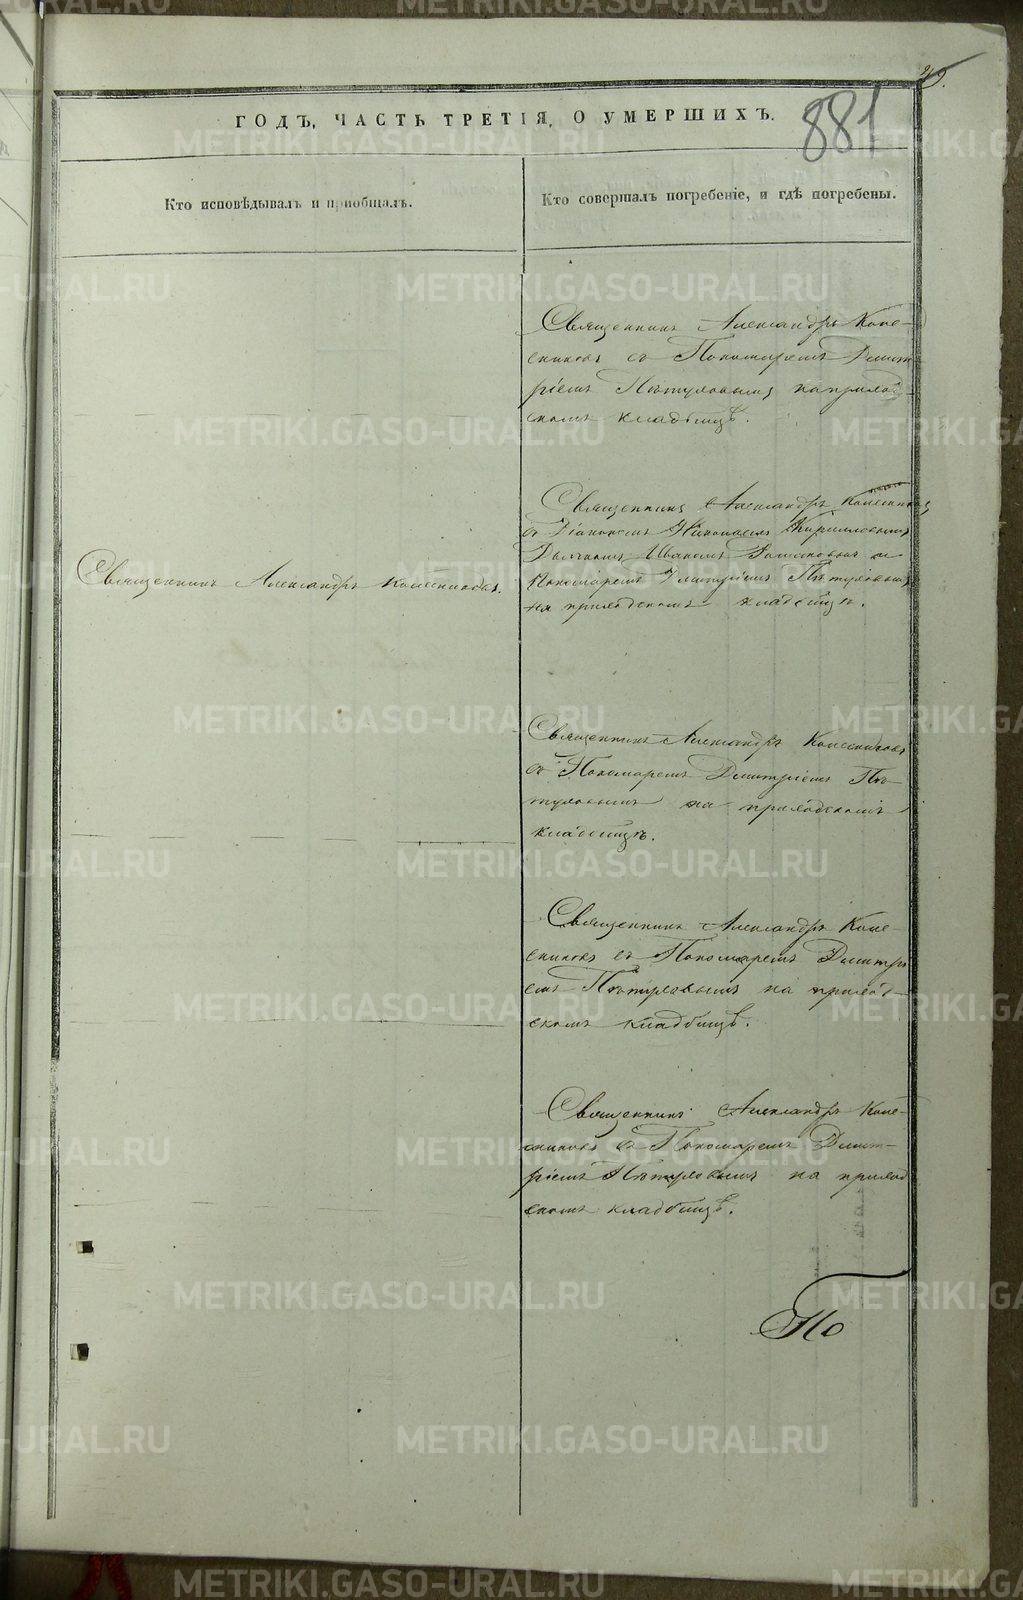 ГОДЪ, ЧАСТЬ ТРЕТІЯ, О УМЕРШИХЪ.
881
Кто исповѣдывалъ и пріобщалъ.
Кто совершалъ погребеніе, и гдѣ погребены.
Священникъ Александръ Коле-
сниковъ съ Пономаремъ Дмит-
ріемъ Пѣтуховымъ на приход-
скомъ кладбищѣ.
Священникъ Александръ Колесниковъ.
Священникъ Александръ Колесниковъ
съ Діакономъ Николаемъ Кирилловымъ
Дьячкомъ Иваномъ и
Пономаремъ Дмитріемъ Пѣтуховымъ
на приходскомъ кладбищѣ.
Священникъ Александръ Колесниковъ
съ Пономаремъ Дмитріемъ Пѣ-
туховымъ на приходскомъ
кладбищѣ.
Священникъ Александръ Коле-
сниковъ съ Пономаремъ Дмитрі
емъ Пѣтуховымъ на приход-
скомъ кладбищѣ.
Священникъ Александръ Коле-
сниковъ съ Пономаремъ Дмит-
ріемъ Пѣтуховымъ на приход
скомъ кладбищѣ.
По
METRIKI.GASO-URAL.RU